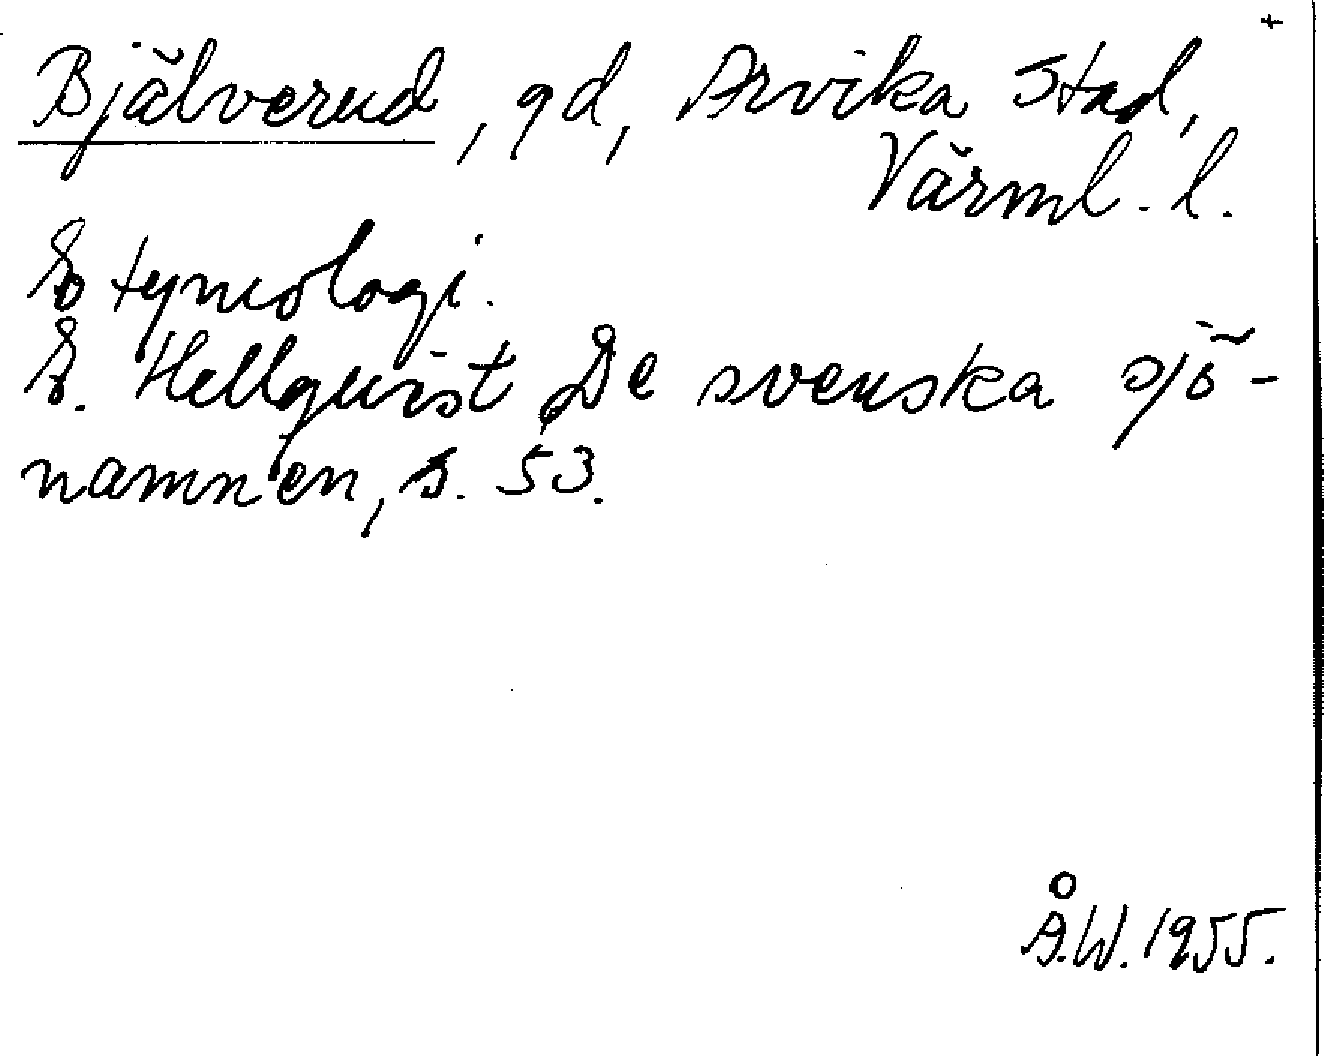 +
Bjälverud, gd, Arvika stad,
Värml. l.
Etymologi.
E. Hellquist De svenska sjö-
namnen, s. 53.
Å.W. 1955.